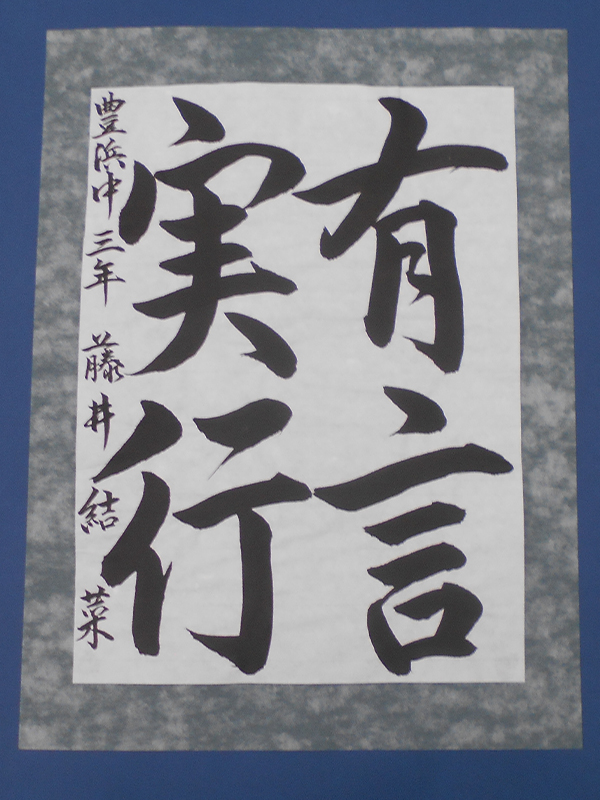 有言
実行
豊浜中三年 藤井結菜